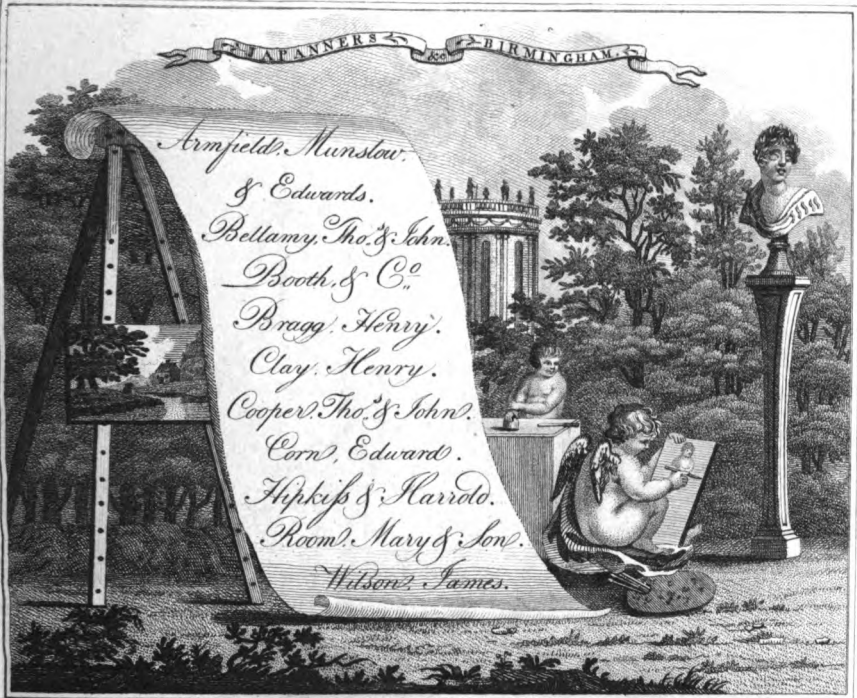 JAPANNERS &c. BIRMINGHAM.
Armfield. Munslow.
& Edwards.
Bellamy. Tho.s & John.
Booth. & Co.
Bragg. Henry.
Clay. Henry.
Cooper. Tho.s & John.
Corn. Edward.
Hipkiſs & Harrold.
Room. Mary & Son.
Wilson. James.